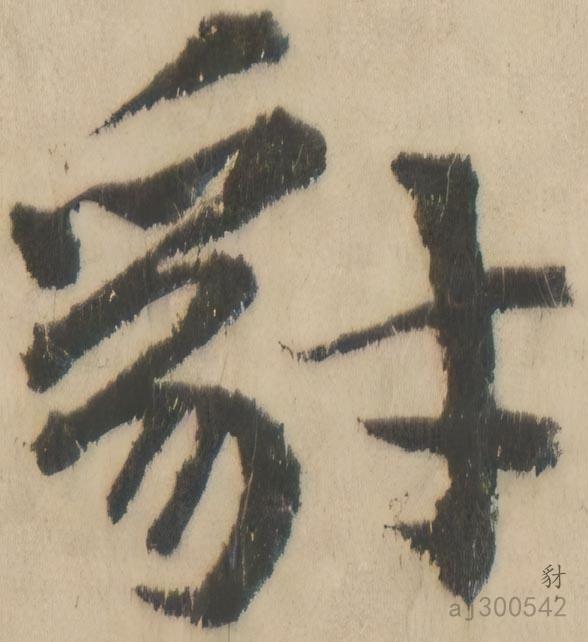 豺
豺
aj300542